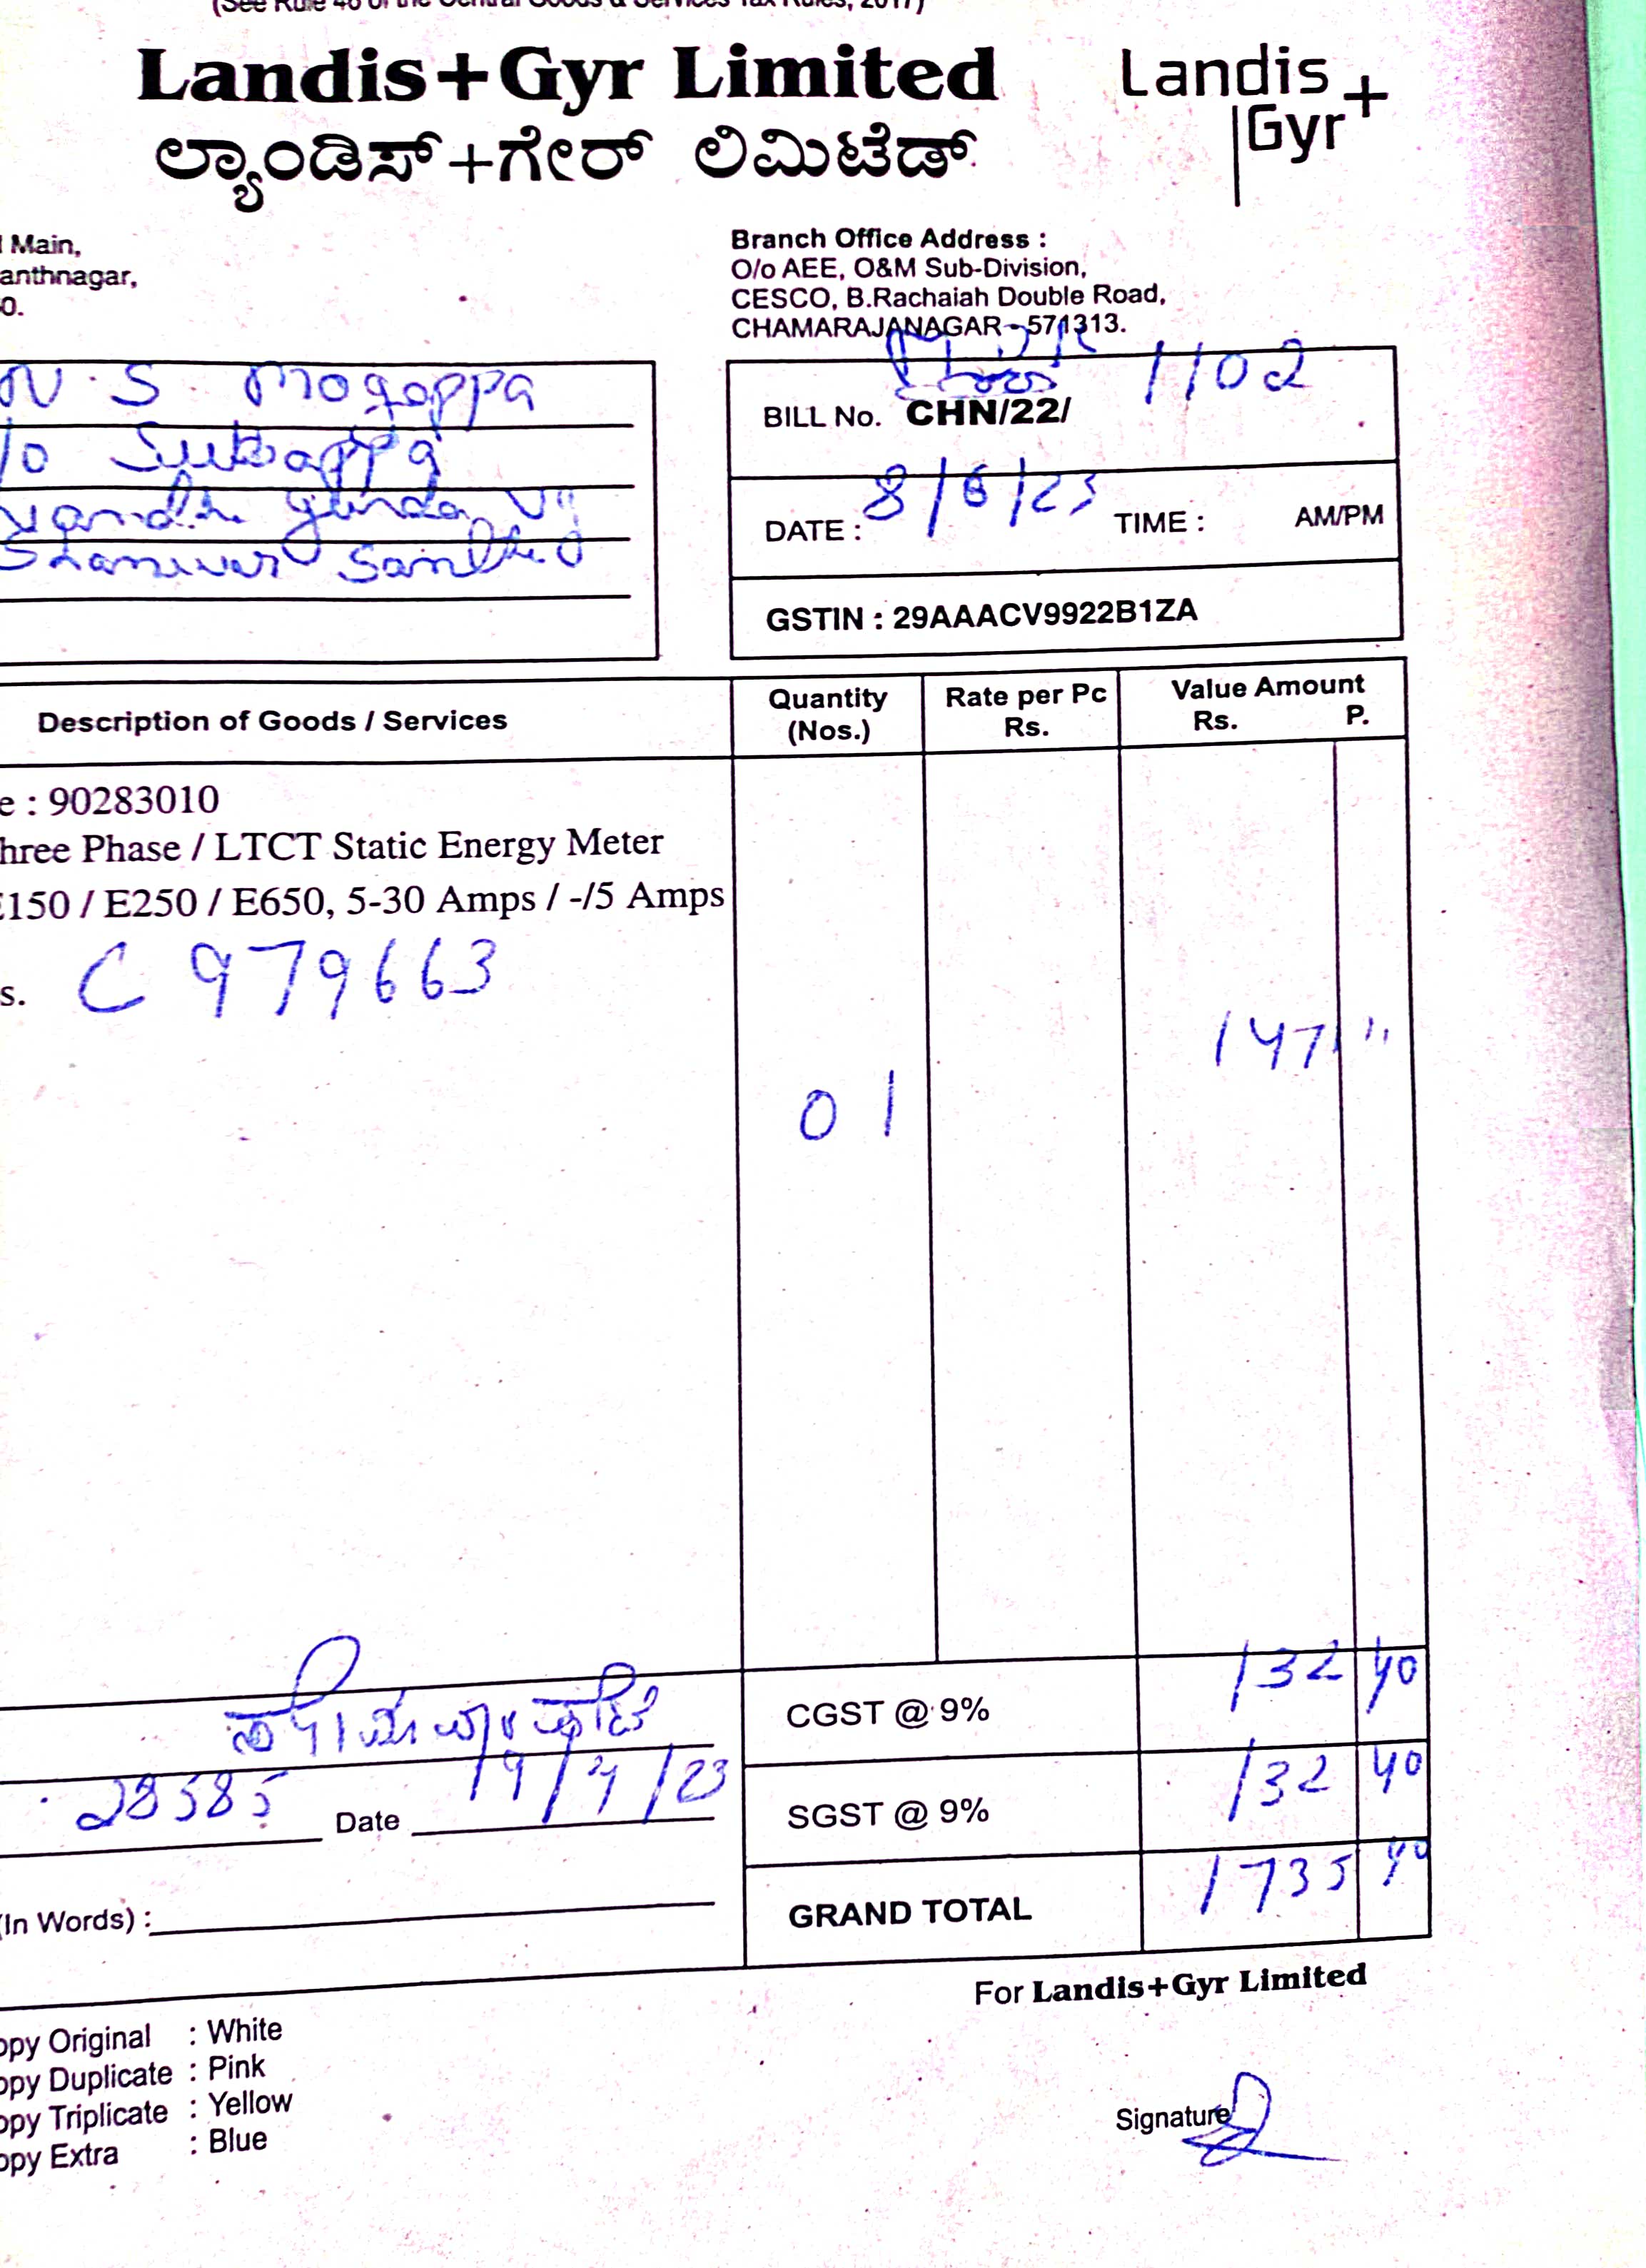 (See Rule 46 of the Central Goods & Services Tax Rules, 2017)
Landis+Gyr Limited
ಲ್ಯಾಂಡಿಸ್+ಗೇರ್ ಲಿಮಿಟೆಡ್
Landis+
Gyr
Main,
anthnagar,
0.
Branch Office Address :
O/o AEE, O&M Sub-Division,
CESCO, B.Rachaiah Double Road,
CHAMARAJANAGAR - 571313.
N. S. Mogappa
/o Subbappa
BILL No. CHN/22/ 1102
DATE : 8/6/23 TIME : AM/PM
GSTIN : 29AAACV9922B1ZA
Description of Goods / Services
Quantity
(Nos.)
Rate per Pc
Rs.
Value Amount
Rs. P.
e : 90283010
hree Phase / LTCT Static Energy Meter
E150 / E250 / E650, 5-30 Amps / -/5 Amps
s. C 979663
1471 "
01
CGST @ 9% 132 40
SGST @ 9% 132 40
28585 Date 19/4/23
GRAND TOTAL 1735 40
(In Words) :
For Landis+Gyr Limited
opy Original : White
opy Duplicate : Pink
opy Triplicate : Yellow
opy Extra : Blue
Signature